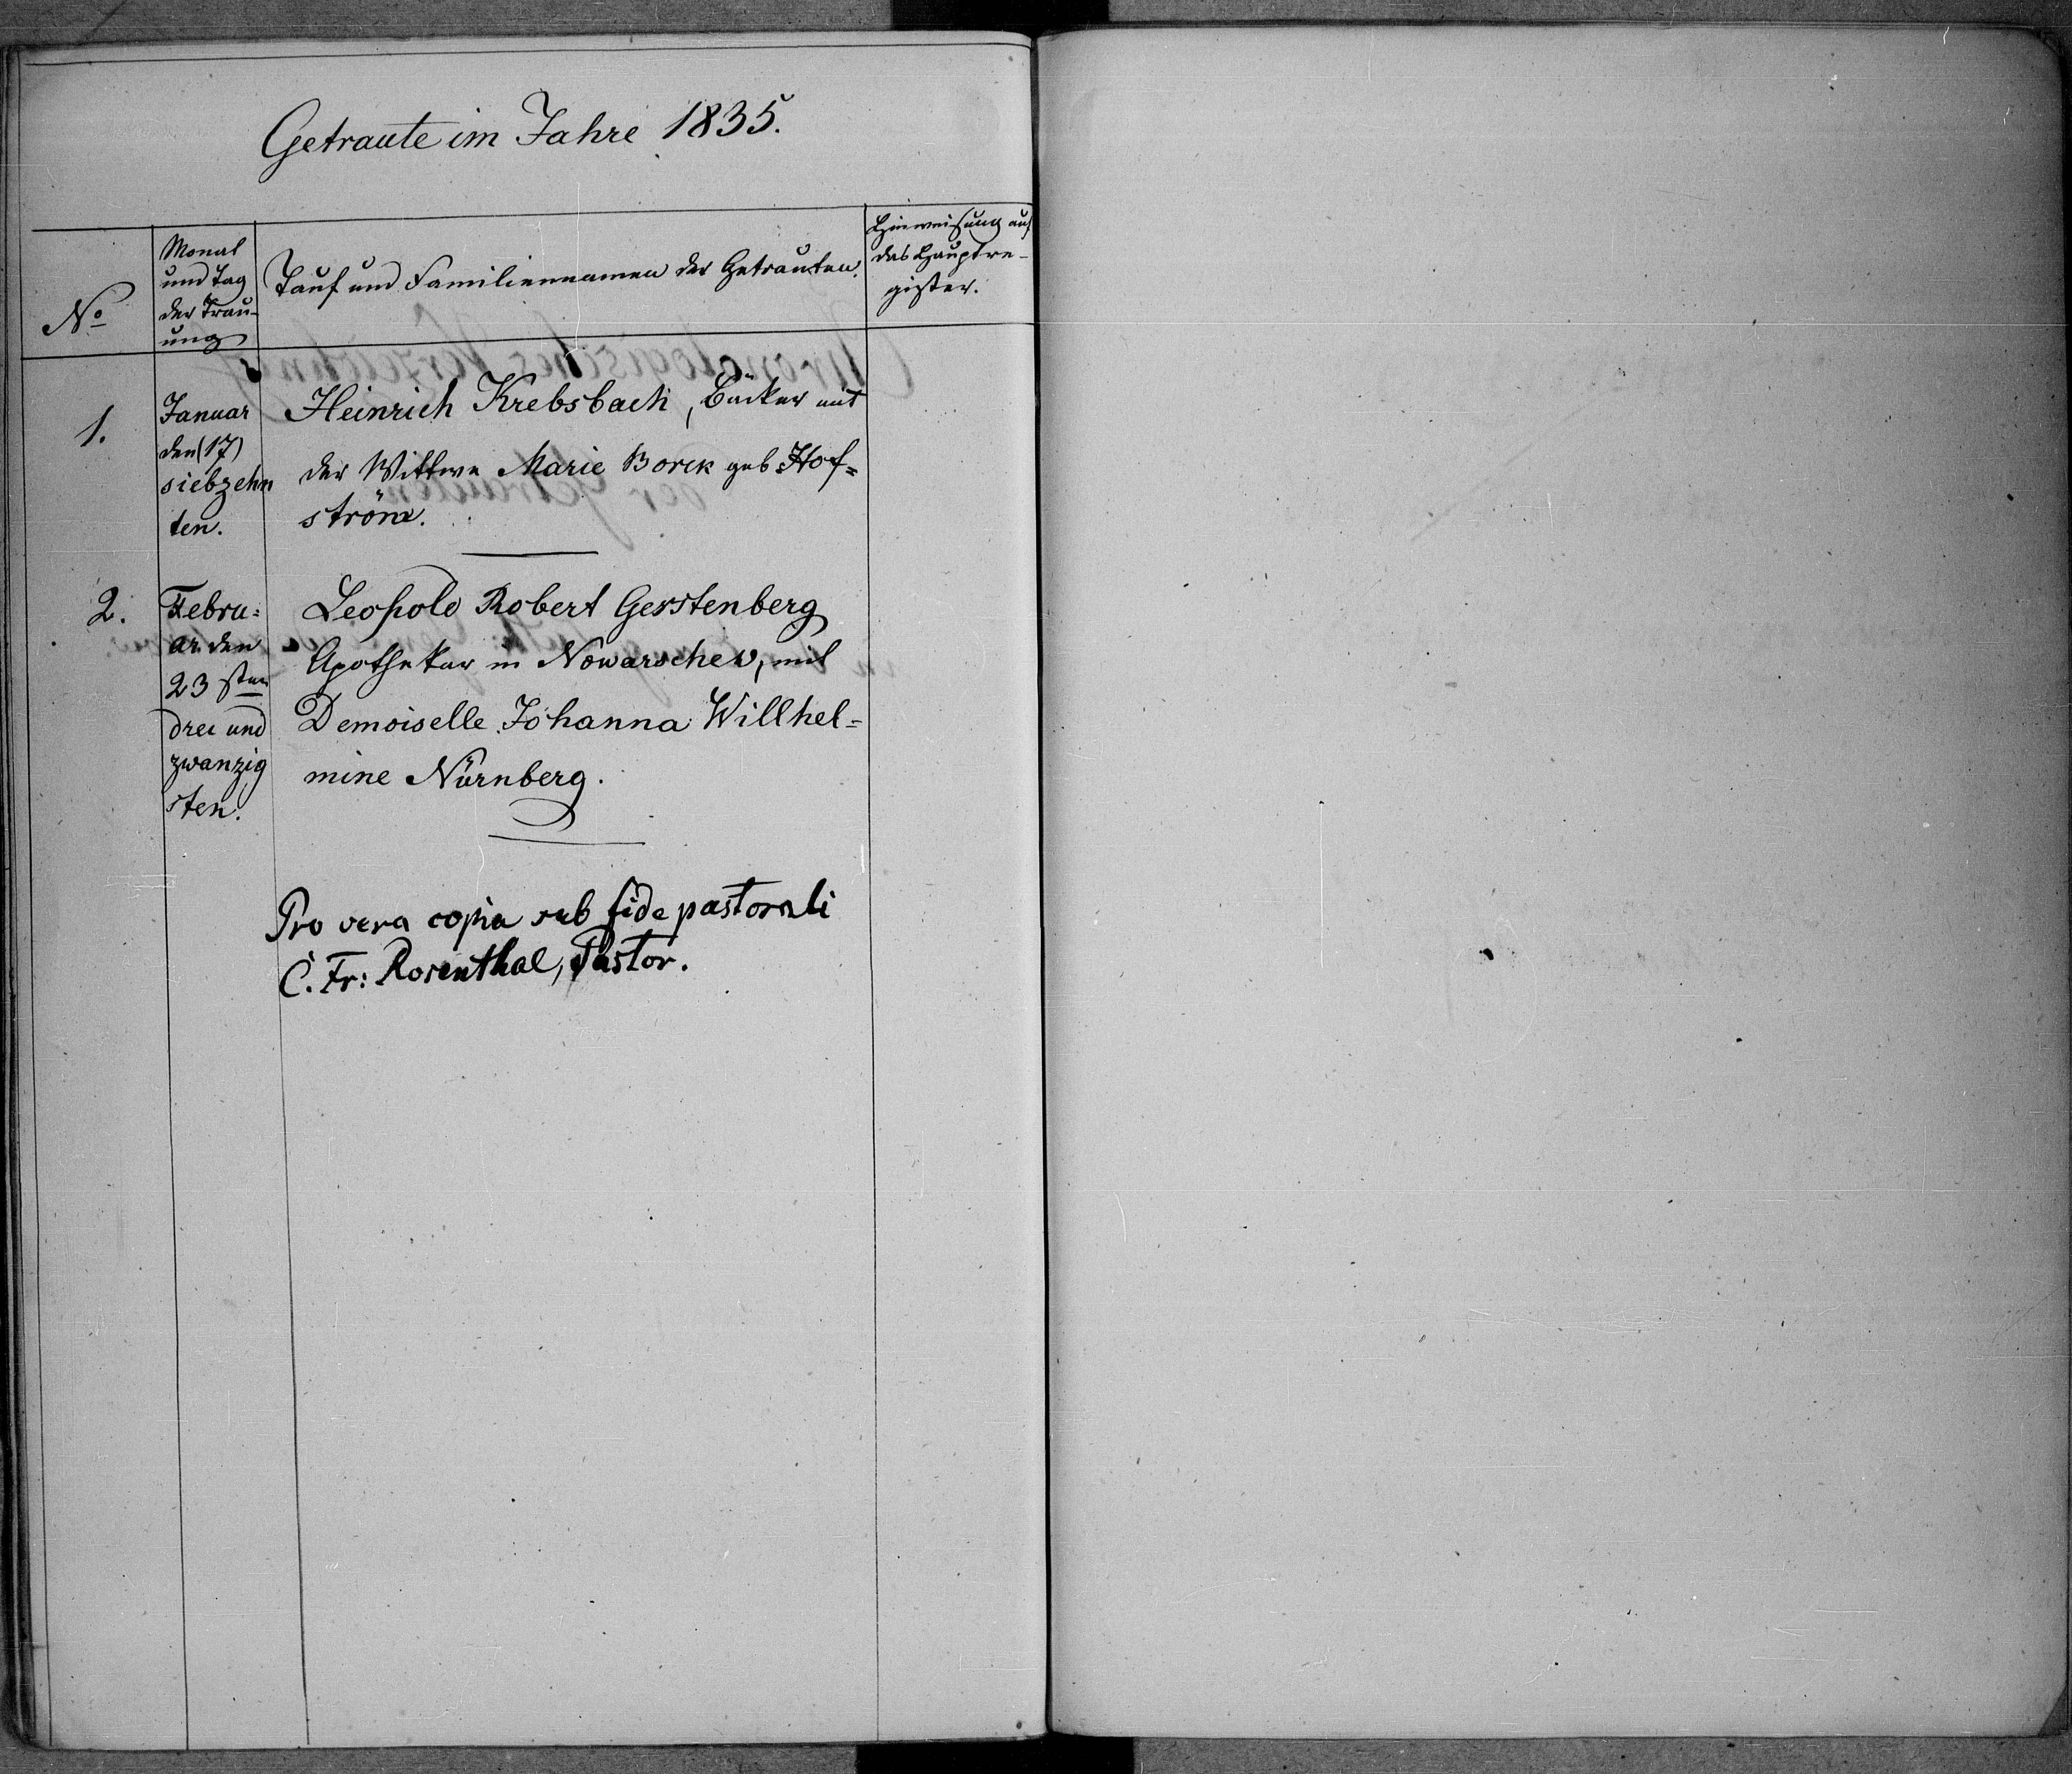 Getraute im Jahre 1835.
No
Monat
und Tag
der Trau-
ung
Tauf und Familiennamen der Getrauten.
Hinweisung auf
das Hauptre-
gister.
1.
Januar
den (17)
siebzehn
ten.
Heinrich Krebsbach, Bäcker mit
der Wittwe Marie Borck geb Hof=
ström.
2.
Febru=
ar. den
23 sten
drei und
zwanzig
sten.
Leopold Robert Gerstenberg
Apotheker in Nowarschew, mit
Demoiselle Johanna Willhel=
mine Nürnberg.
Pro vera copia sub fide pastorali
C. Fr: Rosenthal, Pastor.